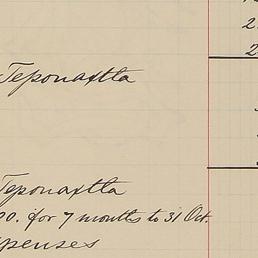 Teponaxtla
Teponaxtla
00. for 7 months to 31 Oct.
penses